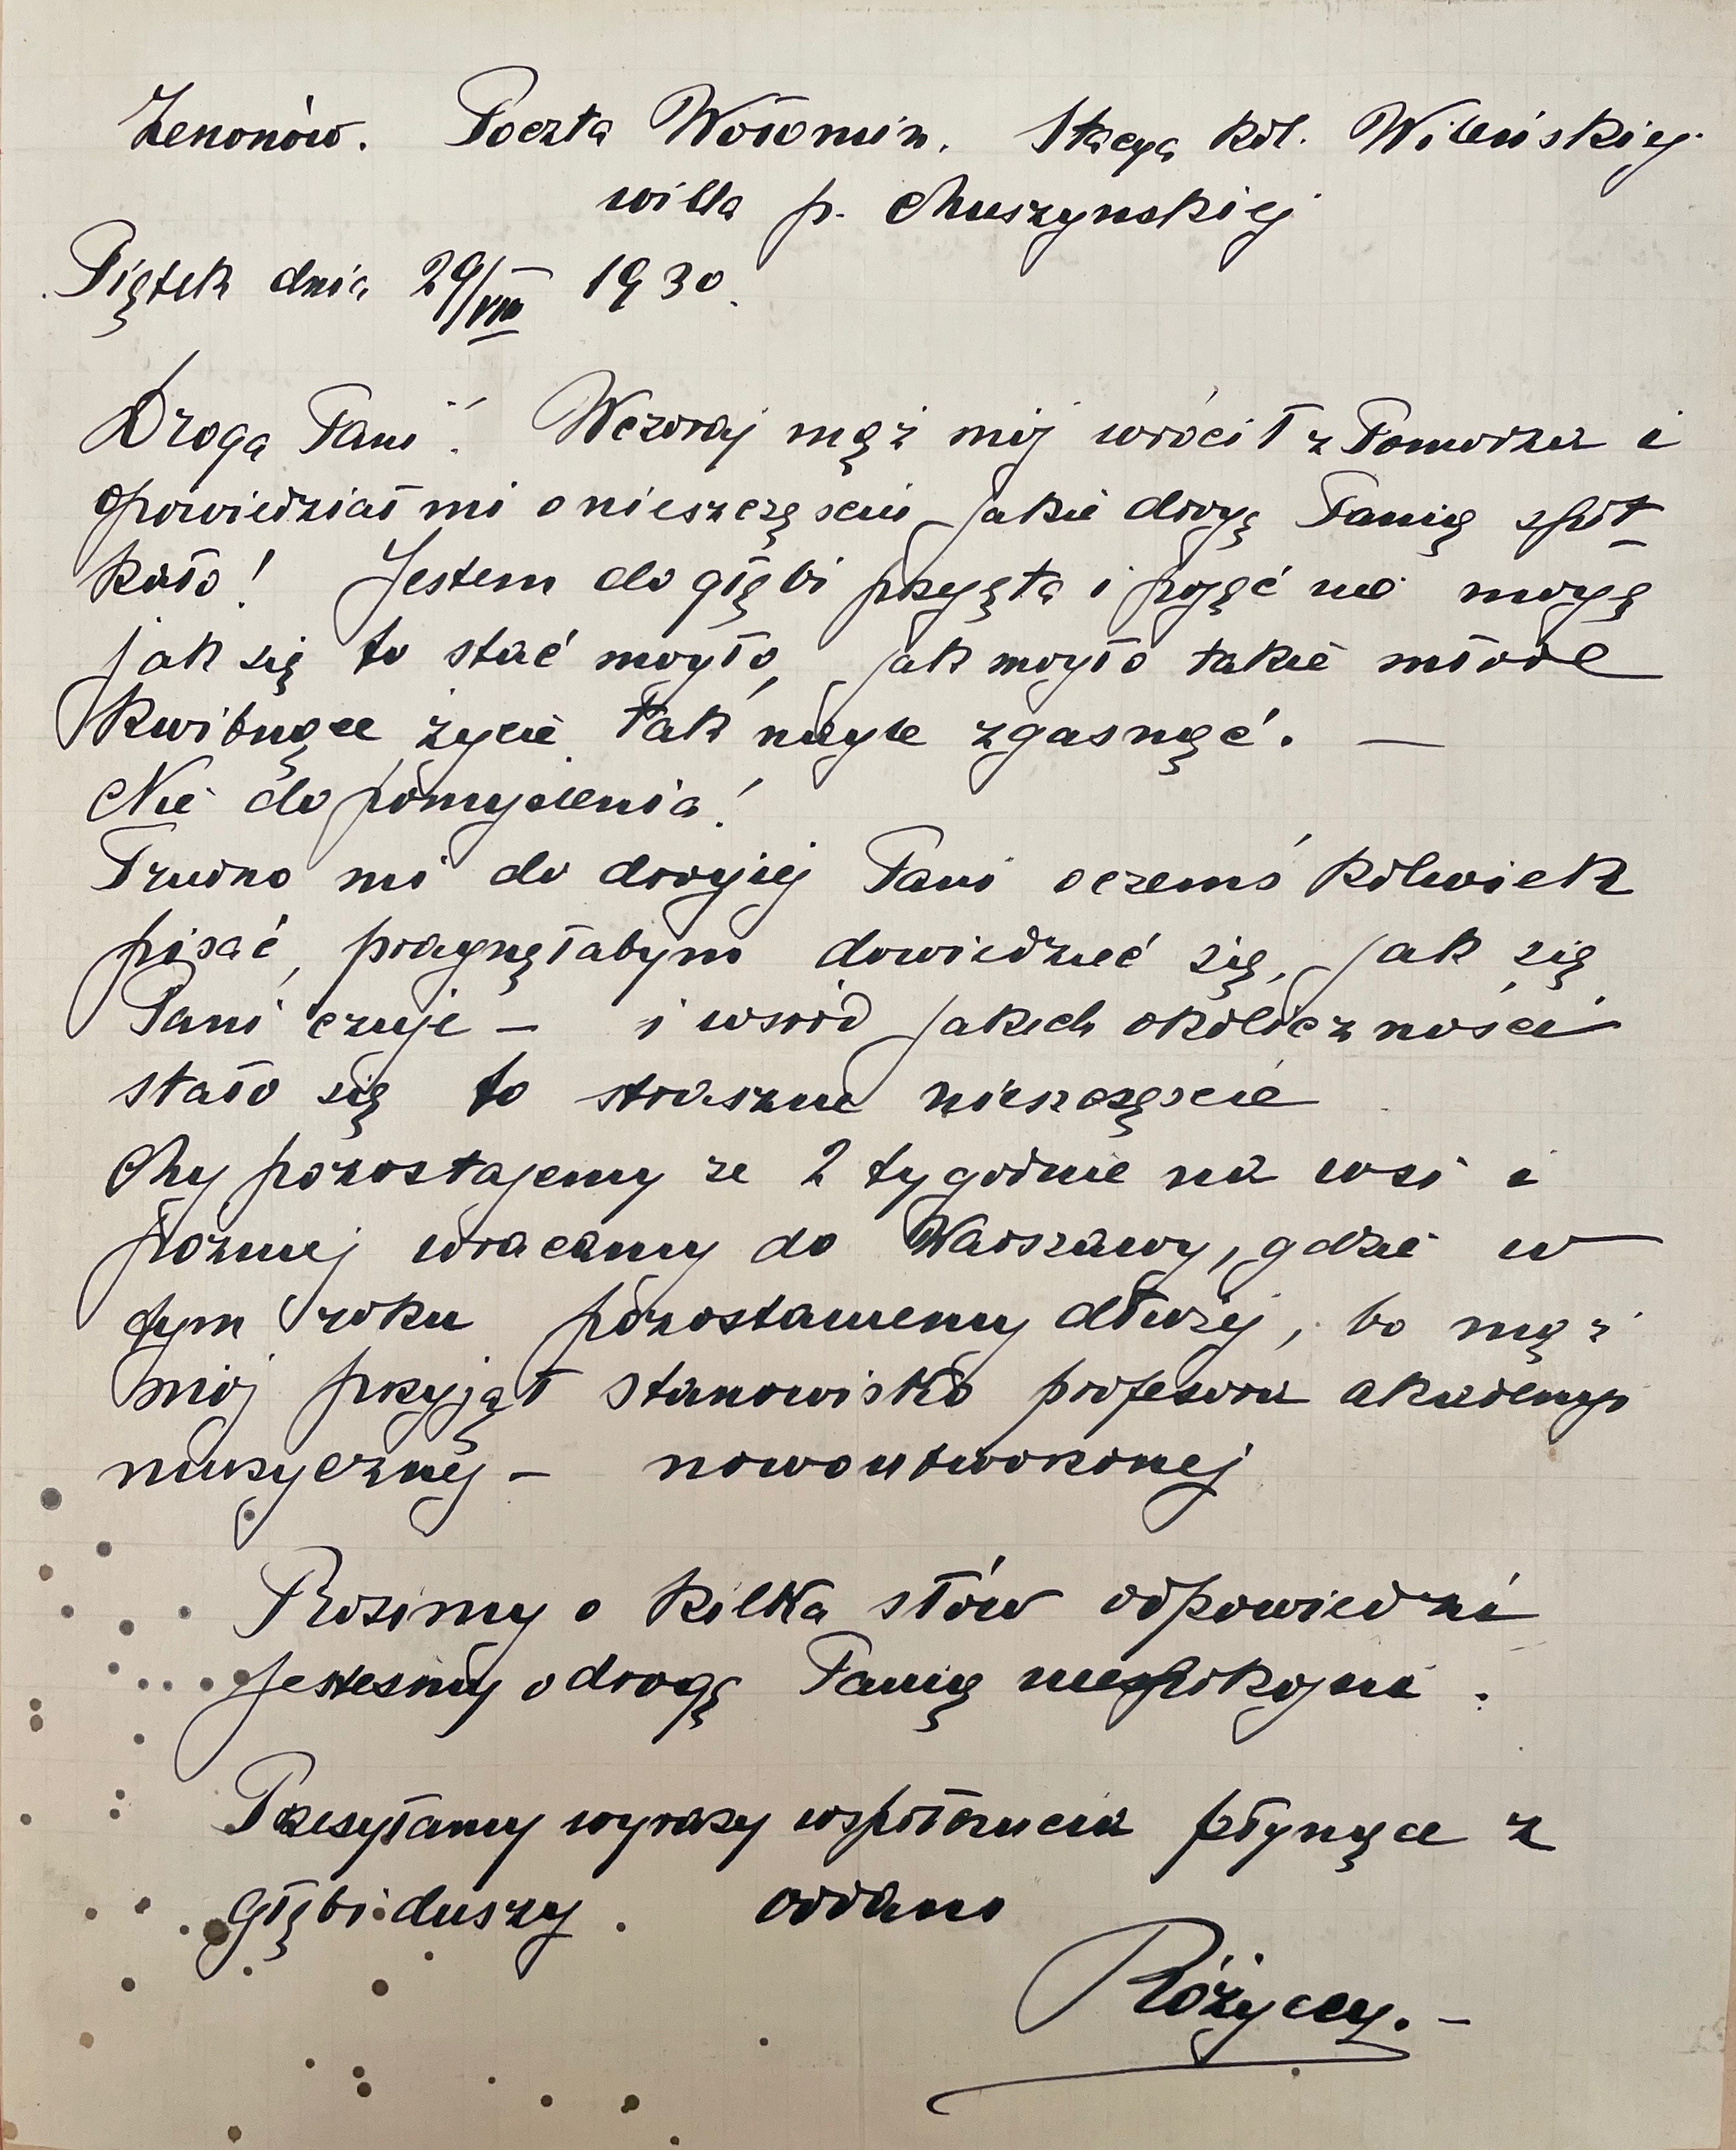 Zenonów. Poczta Wołomin. Stacya kol. Wileńskiej.
willa p. Muszynskiej
Piątek dnia 29/VIII 1930.
Droga Pani! Wczoraj mąż mój wrócił z Pomorza i
opowiedział mi o nieszczęsciu jakie drogą Panią spot-
kało! Jestem do głębi przejęta i pojąć nie mogę
jak się to stać mogło, jak mogło takie młode
kwitnące życie tak nagle zgasnąć. —
Nie do pomyslenia!
Trudno mi do drogiej Pani o czemś kolwiek
pisać, pragnęłabym dowiedzieć się, jak się
Pani czuje — i wsród jakich okoliczności
stało się to straszne nieszczęscie
My pozostajemy ze 2 tygodnie na wsi i
pózniej wracamy do Warszawy, gdzie w
tym roku pozostaniemy dłużej, bo mąż
mój przyjął stanowisko profesora akademji
muzycznej — nowoutworzonej
Prosimy o kilka słów odpowiedzi
Jestesmy o drogą Panią niespokojni.
Przesyłamy wyrazy współczucia płynące z
głębi duszy. oddani
Różyccy. —